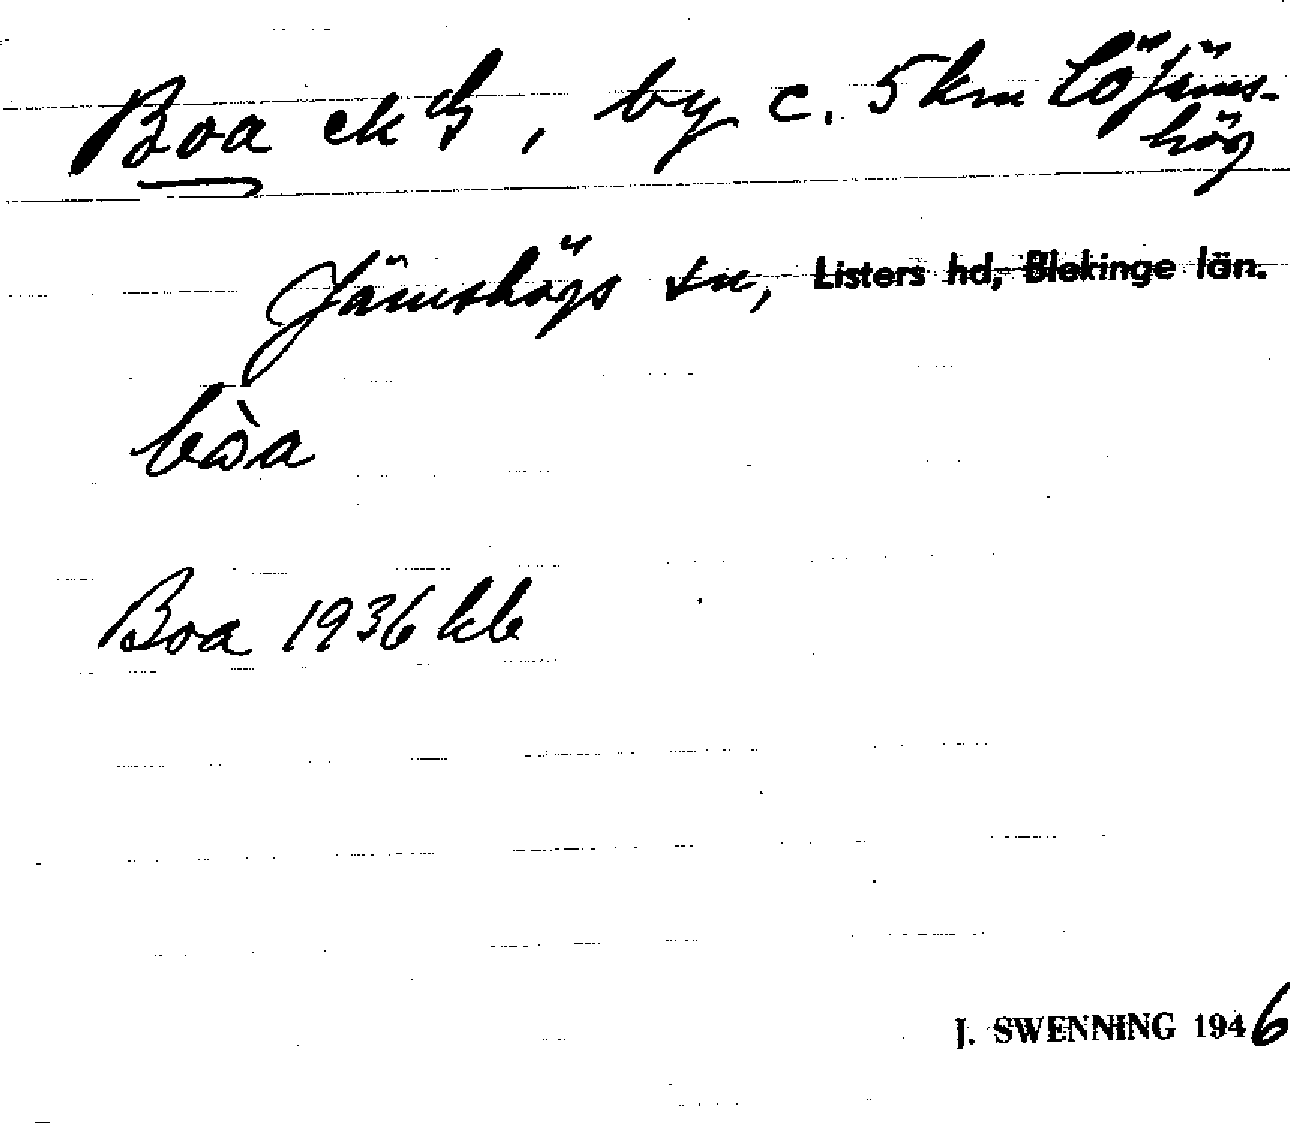 Boa ekG, by c. 5 km LöJäms-
hög
Jämshögs sn, Listers hd, Blekinge län.
bòa
Boa 1936 kb
J. SWENNING 1946